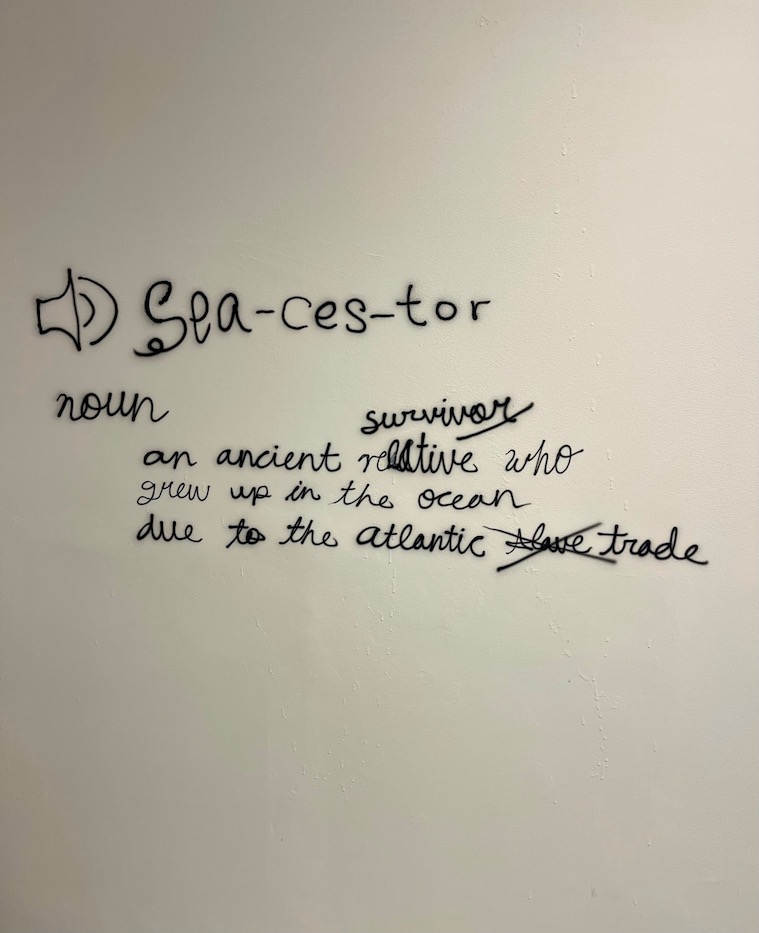 Sea-ces-tor
noun
survivor
an ancient relative who
grew up in the ocean
due to the atlantic slave trade